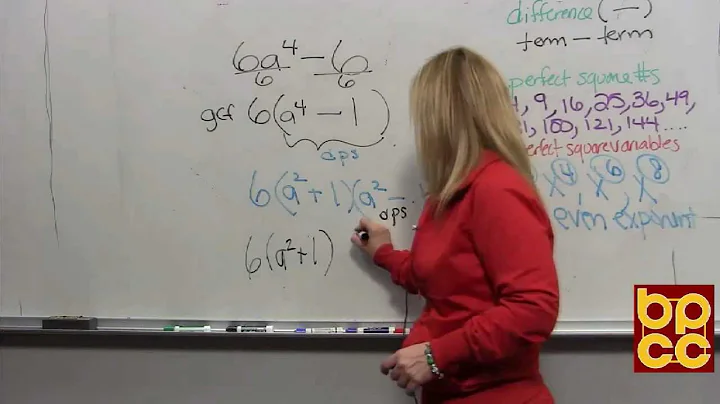 6a⁴ - 6
6 6
gcf 6(a⁴ - 1)
dps
6(a² + 1)(a² -
dps
6(a² + 1)
difference (—)
term - term
perfect square #s
, 9, 16, 25, 36, 49,
1, 100, 121, 144....
rfect square variables
x⁴, x⁶, x⁸
even exponent
bp
cc